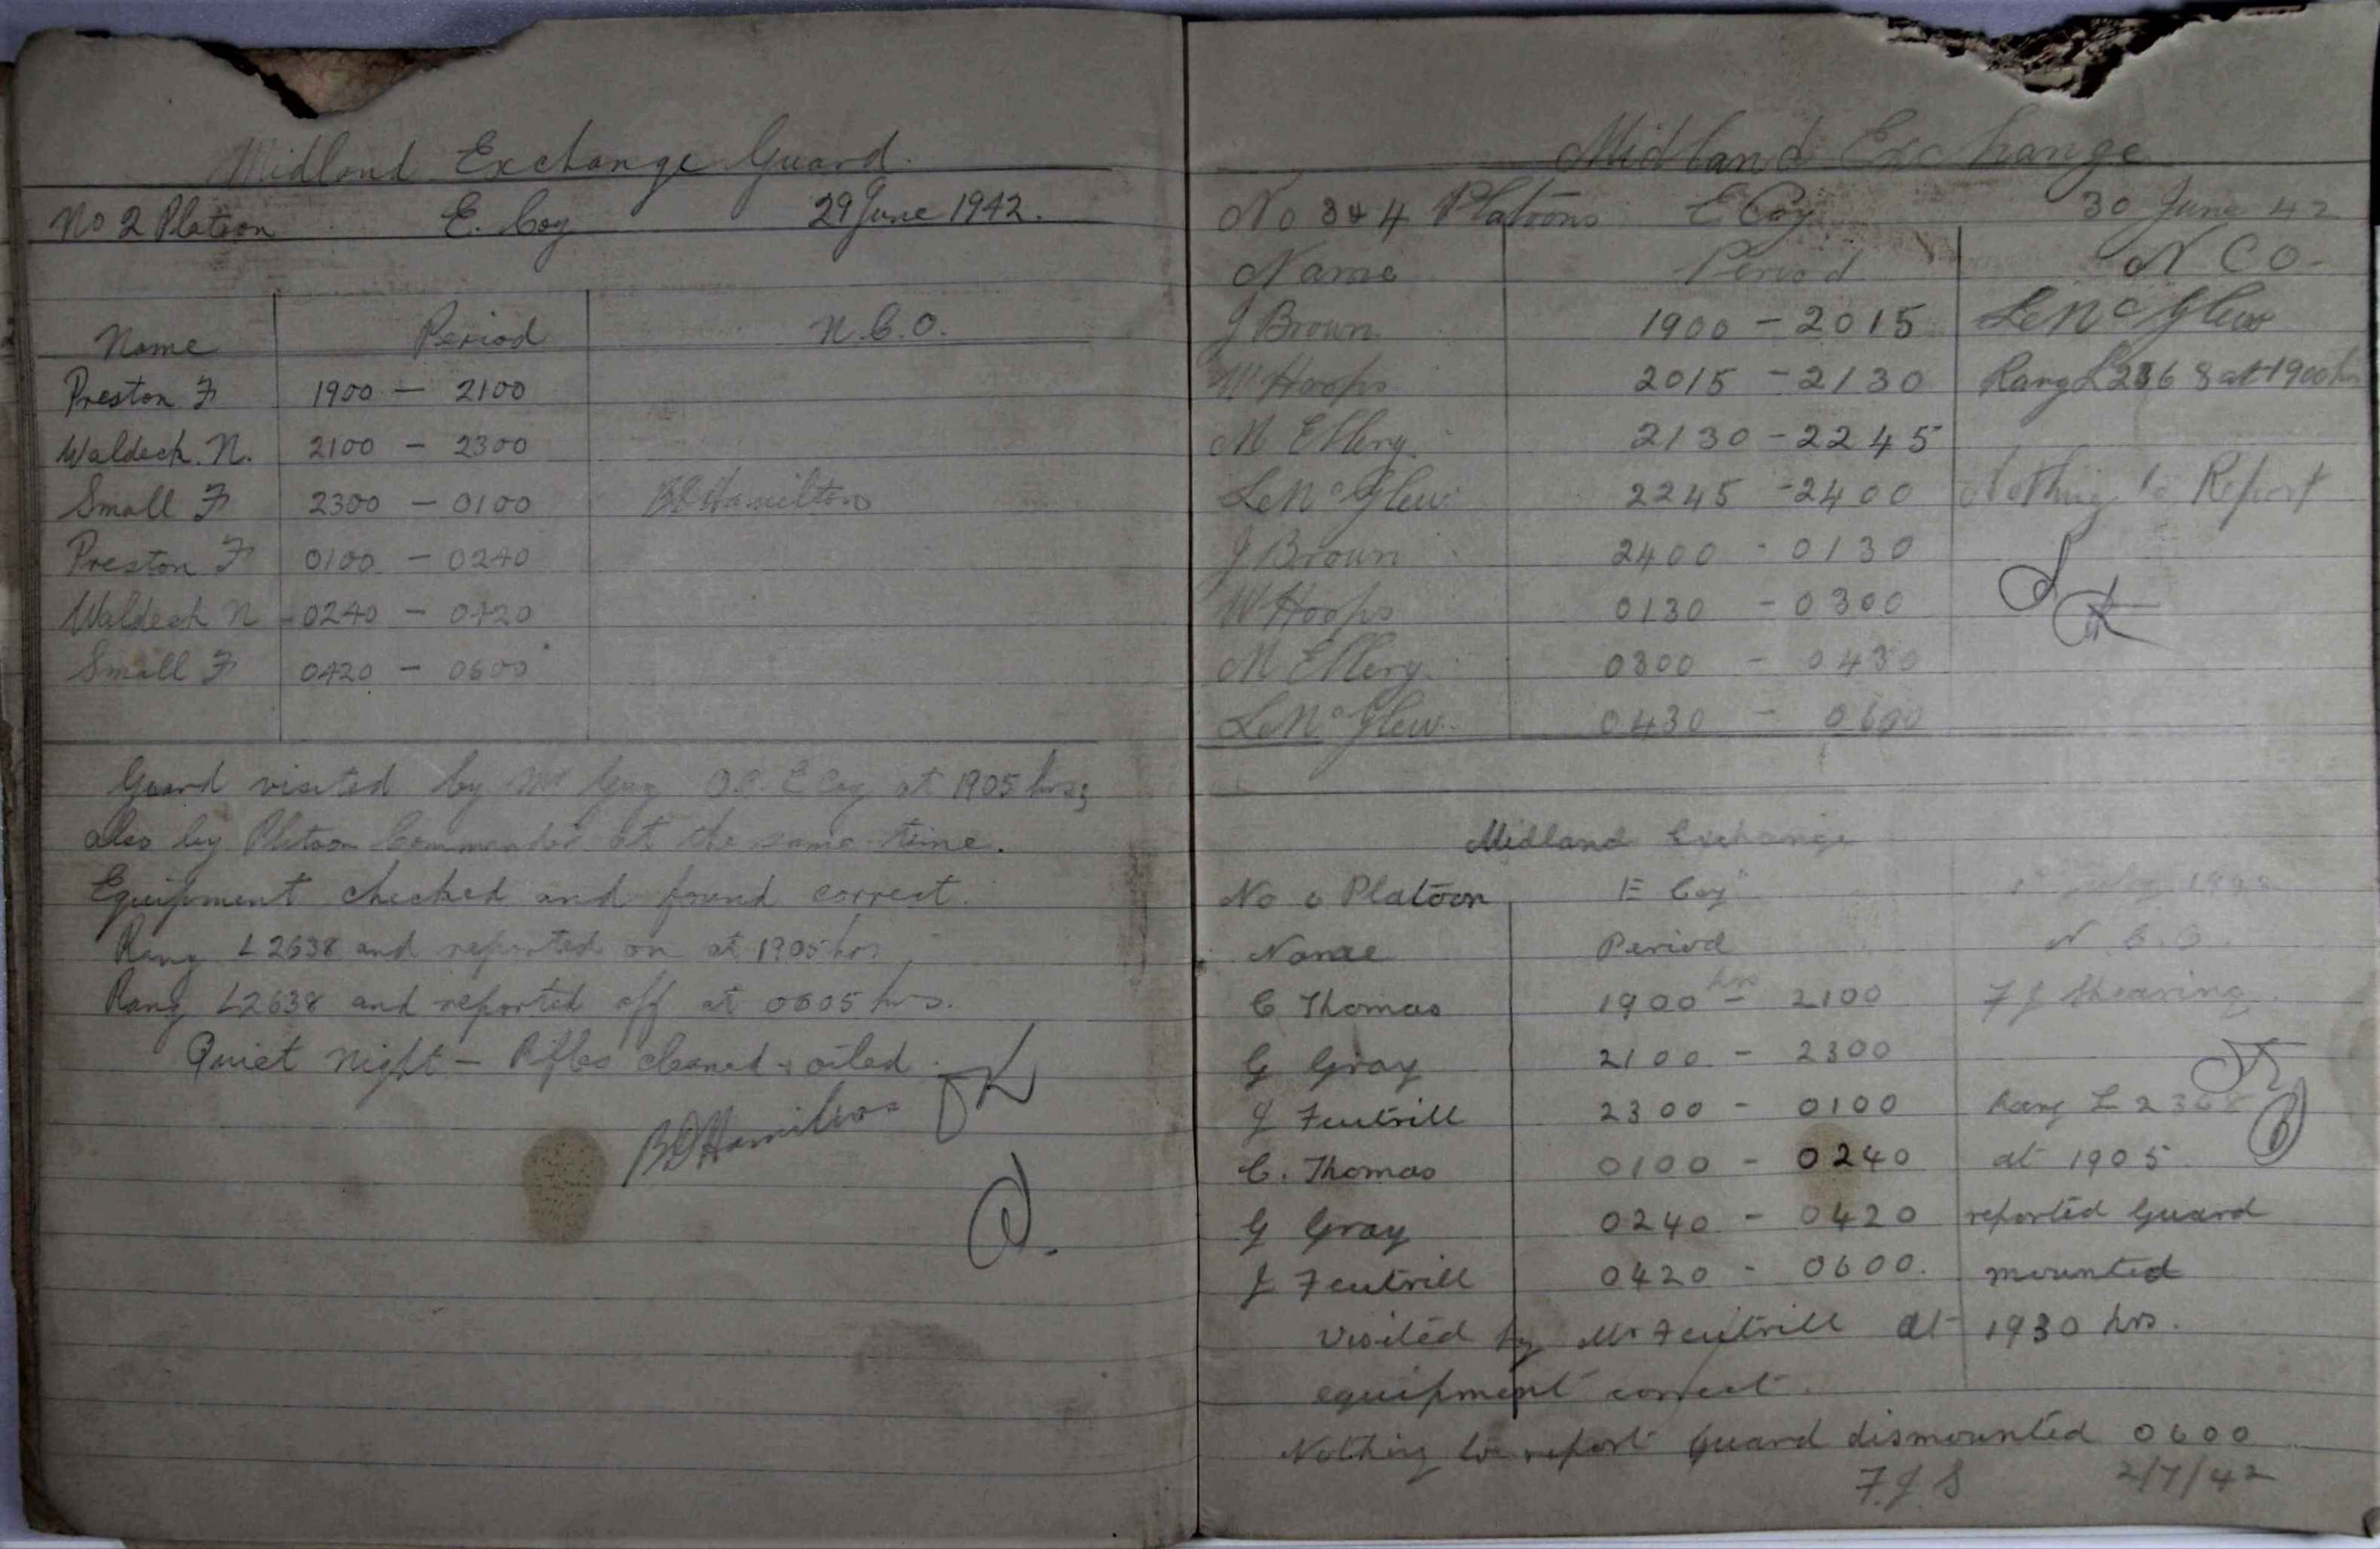 Midland Exchange Guard.
No 2 Platoon E. Coy 29 June 1942.
Name Period N.C.O.
Preston F 1900 — 2100
Waldeck. N. 2100 — 2300
Small F 2300 — 0100 BD Hamilton
Preston F 0100 — 0240
Waldeck N 0240 — 0420
Small F 0420 — 0600
Guard visited by Mr Guy O.C. E Coy at 1905 hrs;
also by Platoon Commander at the same time.
Equipment checked and found correct.
Rang L2638 and reported on at 1905 hrs
Rang L2638 and reported off at 0605 hrs.
Quiet night — Rifles cleaned & oiled.
BD Hamilton
Midland Exchange
No 3 & 4 Platoons E Coy 30 June 42
Name Period N C O
J Brown 1900 - 2015 Le McGlew
W Hoops 2015 - 2130 Rang L2368 at 1900 hrs
M Ellery 2130 - 2245
Le McGlew 2245 - 2400 Nothing to Report
J Brown 2400 - 0130
W Hoops 0130 - 0300
M Ellery 0300 - 0430
Le McGlew 0430 - 0600
Midland Exchange
No Platoon E Coy
Name Period N.C.O.
C Thomas 1900 hrs - 2100 F J Shearing
G Gray 2100 - 2300
J Feutrill 2300 - 0100 Rang L
C. Thomas 0100 - 0240 at 1905
G Gray 0240 - 0420 reported Guard
J Feutrill 0420 - 0600. mounted
Visited by Mr Feutrill at 1930 hrs.
equipment correct.
Nothing to report Guard dismounted 0600
F.J.S 2/7/42